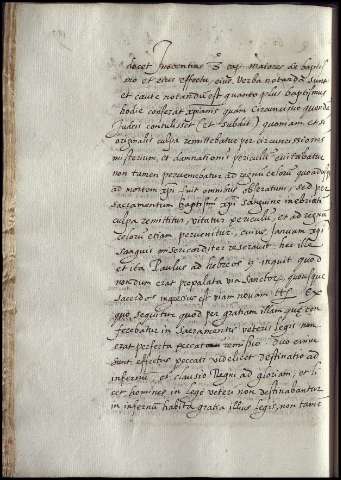 docet Innocentius 3 cap. maiores de baptis
mo et eius effectu, cuius verba notanda sunt
et caute notandum est quanto plus baptismus
hodie conferat xpianis quam circuncisio quonda
Iudeis contulisset (et subdit) quoniam etsi
originalis culpa remittebatur per circuncisionis
misterium, et damnationis periculum euitabatur
non tamen perueniebatur ad regnu celoru quod usq
ad mortem xpi fuit omnibus obseratum, sed per
sacramentum baptismi xpi sanguine
culpa remittitur, vitatur periculu, et ad regnu
celoru etiam peruenitur, cuius Ianuam xpi
sanguis misericorditer reserauit hec ille
et ita Paulus ad hebreos 9 inquit quod
nondum erat propalata via sanctor, quousque
sacerdos ingressus est viam nouam Ex
quo sequitur quod per gratiam illam que con
ferebatur in sacramentis veteris legis non
erat perfecta peccati remissio duo enim
sunt effectus peccati videlicet destinatio ad
infernu, et clausio Regni ad gloriam, et li
cet homines in lege veteri non destinabantur
in infernu habita gratia illius legis, non tame